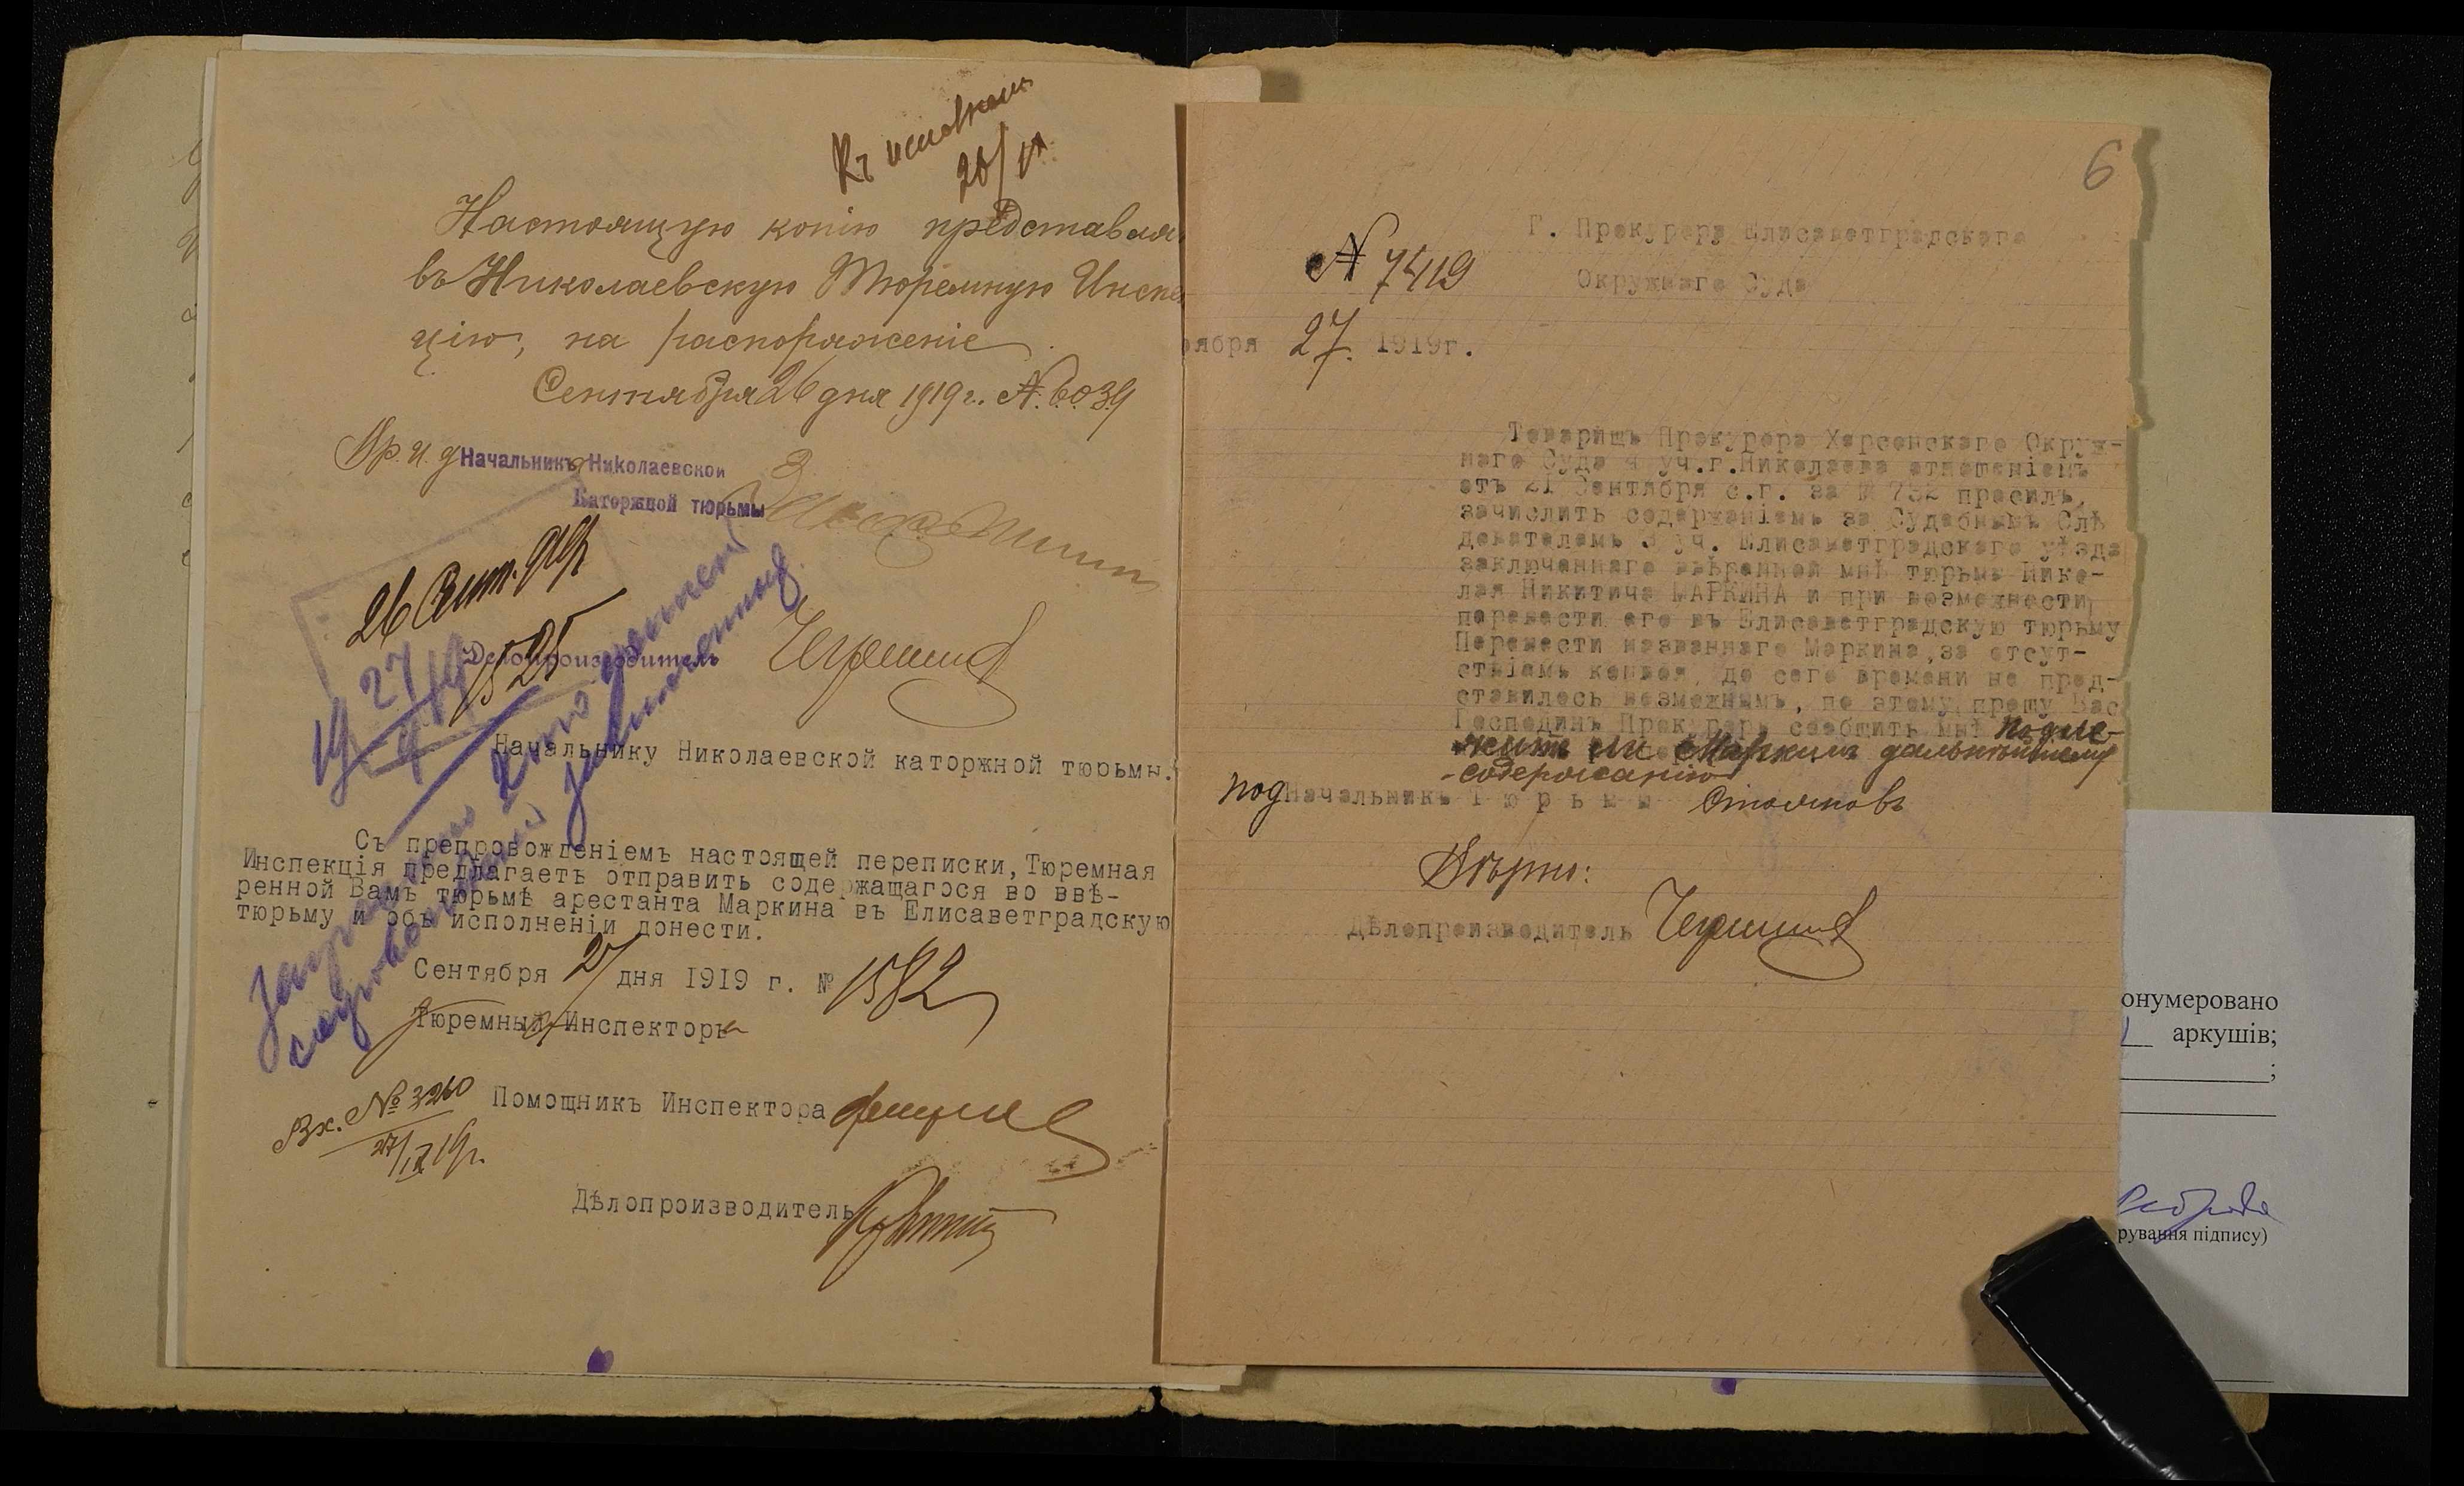 Къ исполнен
26/IX
Настоящую копію представля
въ Николаевскую Тюремную Инспек
цію, на распоряженіе.
Сентября 26 дня 1919 г. № 6039
Вр. и. д. Начальникъ Николаевской
Каторжной тюрьмы
26 Сент. 919
1525
Дѣлопроизводитель
19 27/9 19
Начальнику Николаевской каторжной тюрьмы.
Съ препровожденіемъ настоящей переписки, Тюремная
Инспекція предлагаетъ отправить содержащагося во ввѣ-
ренной Вамъ тюрьмѣ арестанта Маркина въ Елисаветградскую
тюрьму и объ исполненіи донести.
Сентября 27 дня 1919 г. № 1582
Тюремный Инспекторъ
Вх. № 3260
27/IX 19г.
Помощникъ Инспектора
Дѣлопроизводитель
6
Г. Прокурору Елисаветградскаго
Окружнаго Суда
№ 7419
ября 27. 1919г.
Товарищъ Прокурора Херсонскаго Окруж-
наго Суда 4 уч.г.Николаева отношеніемъ
отъ 21 Сентября с.г. за № 732 просилъ,
зачислить содержаніемъ за Судебнымъ Слѣ
дователемъ 3 уч. Елисаветградскаго уѣзда
заключеннаго ввѣренной мнѣ тюрьмѣ Нико-
лая Никитича МАРКИНА и при возможности
перевести его въ Елисаветградскую тюрьму
Перевести названнаго Маркина, за отсут-
ствіемъ конвоя, до сего времени не пред-
ставилось возможнымъ, по этому прошу Вас
Господинъ Прокуроръ сообщить мнѣ подле-
житъ ли Маркинъ дальнѣйшему
содержанію
под Начальникъ Тюрьмы Стояновъ
Вѣрно:
Дѣлопроизводитель
онумеровано
аркушів;
;
рування підпису)